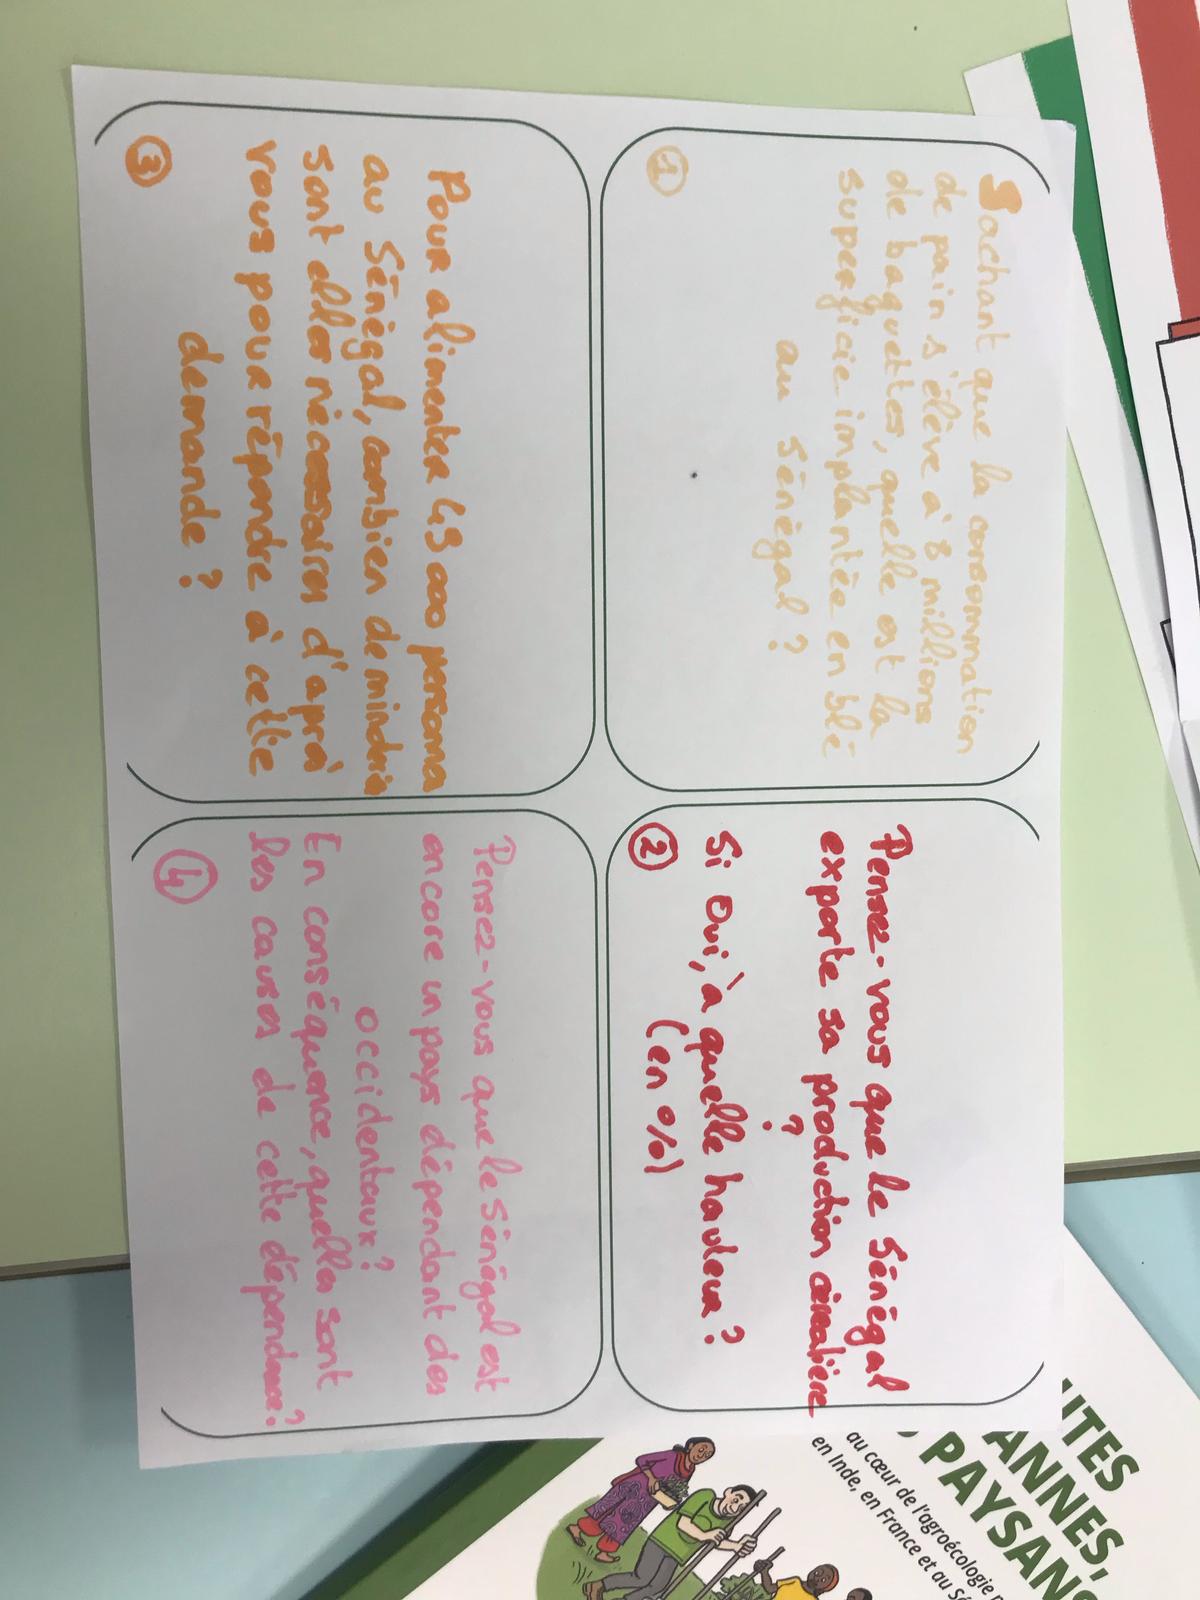 Sachant que la consommation
de pain s'élève à 8 millions
de baguettes, quelle est la
superficie implantée en blé
au Sénégal ?
1
Pensez-vous que le Sénégal
exporte sa production céréalière
?
Si Oui, à quelle hauteur ?
(en %)
2
Pour alimenter 49 000 personna
au Sénégal, combien de mindria
sont elles nécessaires d'aprà
vous pour répondre à cette
demande ?
3
Pensez-vous que le Sénégal est
encore un pays dépendant des
occidentaux ?
En conséquence, quelles sont
les causes de cette dépendance ?
4
PAYSAN
au cœur de l'agroécologie
en Inde, en France et au